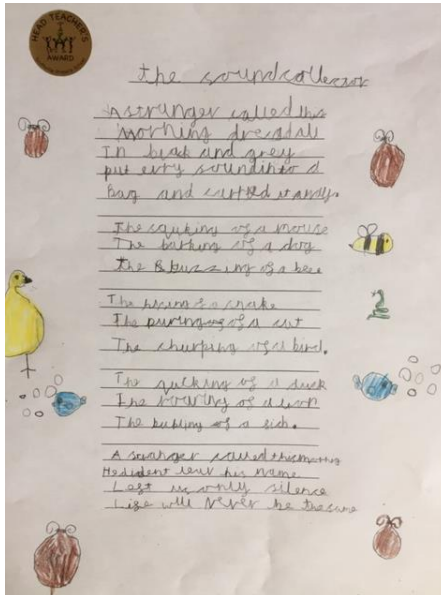 HEAD TEACHER'S
AWARD
the soundcollector
A stranger called this
Morning dressdall
In black and grey
put evry soundinto a
Bag and carred it away.
The squking of a mouse
The barking of a dog
the buzzing of a bee
The hising of a snake
The puring of a cat
The churping of a bird.
The qucking of a duck
The rowring of a lion
The bubling of a fish.
A stranger called this morning
He dident leav his name
Left us only silence
Life will Never be the same